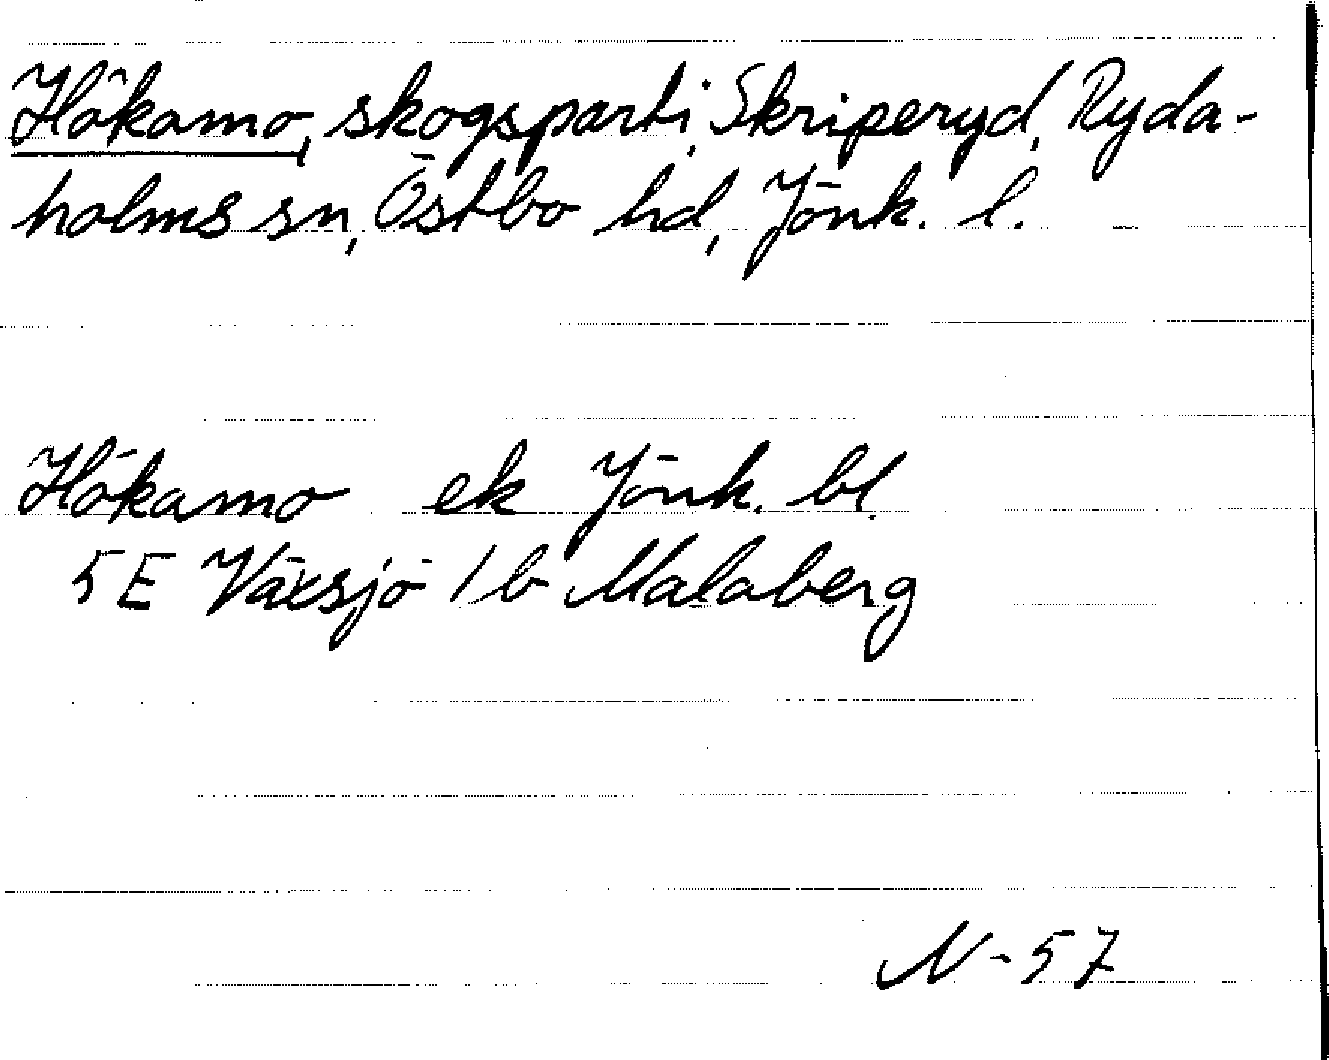 Hökamo, skogsparti, Skriperyd, Ryda-
holms sn, Östbo hd, Jönk. l.
Hökamo ek Jönk. bl.
5E Växsjö 1b Malaberg
N-57